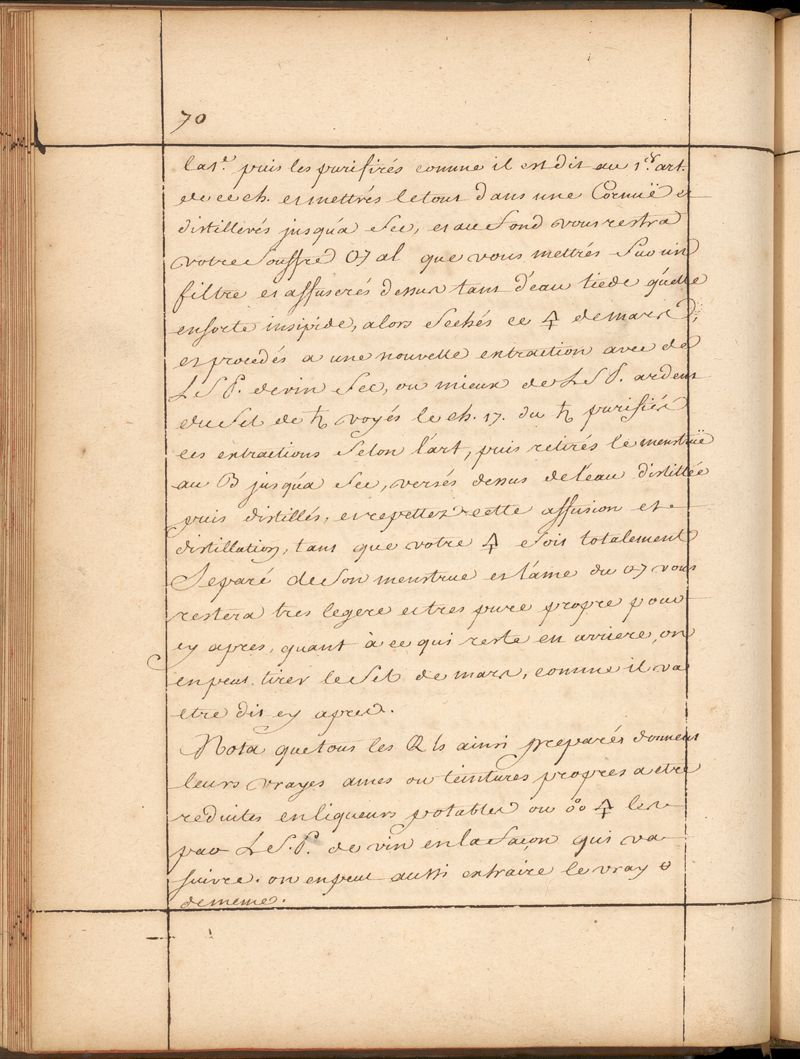 70
la 1.e puis les purifirés comme il est dit au 1.er art.
de ce ch. et mettrés le tout dans une Cornuë et
distillerés jusqu'a Sec, et au Fond vous restra
votre Souffre ♂ al que vous mettrés Sur un
filtre et affuserés dessus tant d'eau tiede qu'elle
en sorte insipide, alors Sechés ce 🜍 de mars,
et procedés a une nouvelle extraction avec de
L S P. de vin Sec, ou mieux de L S P. ardent
du Sel de ♄ voyés le ch. 17. du ♄ purifiés
ces extractions Selon l'art, puis retirés le menstruë
au B jusqu'a Sec, versés dessus de l'eau distillée
puis distillés, et repettez cette affusion et
distillation, tant que votre 🜍 Soit totalement
Separé de Son menstrue et l'ame du ♂ vous
restera tres legere et tres pure propre pour
cy apres, quant à ce qui reste en arriere, on
en peut tirer le Sel de mars, comme il va
etre dit cy apres.
Nota que tous les ls ainsi preparés donnent
leurs vrayes ames ou teintures propres a etre
reduites en liqueurs potables ou 🜍 les
par L S. P. de vin en la Façon qui va
suivre. on en peut aussi extraire le vray
de meme.